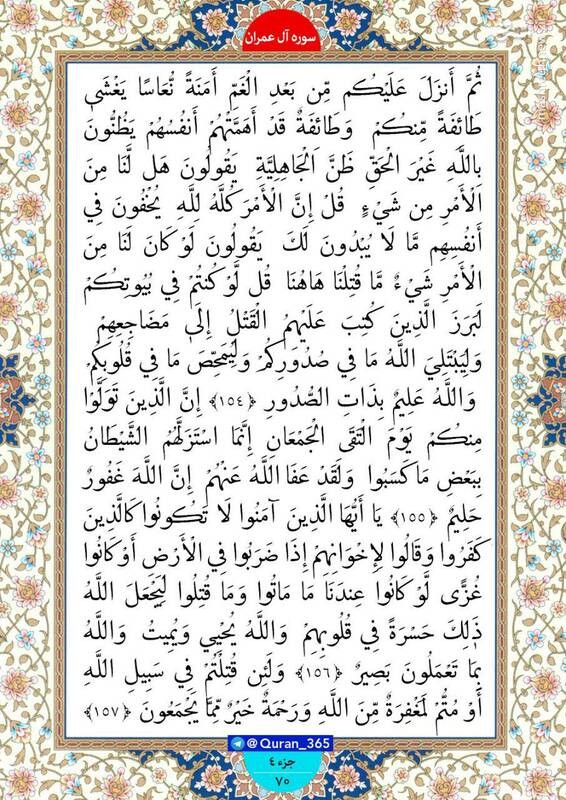 سوره آل عمران
ثُمَّ أَنزَلَ عَلَيْكُم مِّن بَعْدِ الْغَمِّ أَمَنَةً نُّعَاسًا يَغْشَىٰ
طَائِفَةً مِّنكُمْ وَطَائِفَةٌ قَدْ أَهَمَّتْهُمْ أَنفُسُهُمْ يَظُنُّونَ
بِاللَّهِ غَيْرَ الْحَقِّ ظَنَّ الْجَاهِلِيَّةِ يَقُولُونَ هَل لَّنَا مِنَ
الْأَمْرِ مِن شَيْءٍ قُلْ إِنَّ الْأَمْرَ كُلَّهُ لِلَّهِ يُخْفُونَ فِي
أَنفُسِهِم مَّا لَا يُبْدُونَ لَكَ يَقُولُونَ لَوْ كَانَ لَنَا مِنَ
الْأَمْرِ شَيْءٌ مَّا قُتِلْنَا هَاهُنَا قُل لَّوْ كُنتُمْ فِي بُيُوتِكُمْ
لَبَرَزَ الَّذِينَ كُتِبَ عَلَيْهِمُ الْقَتْلُ إِلَىٰ مَضَاجِعِهِمْ
وَلِيَبْتَلِيَ اللَّهُ مَا فِي صُدُورِكُمْ وَلِيُمَحِّصَ مَا فِي قُلُوبِكُمْ
وَاللَّهُ عَلِيمٌ بِذَاتِ الصُّدُورِ ﴿١٥٤﴾ إِنَّ الَّذِينَ تَوَلَّوْا
مِنكُمْ يَوْمَ الْتَقَى الْجَمْعَانِ إِنَّمَا اسْتَزَلَّهُمُ الشَّيْطَانُ
بِبَعْضِ مَا كَسَبُوا وَلَقَدْ عَفَا اللَّهُ عَنْهُمْ إِنَّ اللَّهَ غَفُورٌ
حَلِيمٌ ﴿١٥٥﴾ يَا أَيُّهَا الَّذِينَ آمَنُوا لَا تَكُونُوا كَالَّذِينَ
كَفَرُوا وَقَالُوا لِإِخْوَانِهِمْ إِذَا ضَرَبُوا فِي الْأَرْضِ أَوْ كَانُوا
غُزًّى لَّوْ كَانُوا عِندَنَا مَا مَاتُوا وَمَا قُتِلُوا لِيَجْعَلَ اللَّهُ
ذَٰلِكَ حَسْرَةً فِي قُلُوبِهِمْ وَاللَّهُ يُحْيِي وَيُمِيتُ وَاللَّهُ
بِمَا تَعْمَلُونَ بَصِيرٌ ﴿١٥٦﴾ وَلَئِن قُتِلْتُمْ فِي سَبِيلِ اللَّهِ
أَوْ مُتُّمْ لَمَغْفِرَةٌ مِّنَ اللَّهِ وَرَحْمَةٌ خَيْرٌ مِّمَّا يَجْمَعُونَ ﴿١٥٧﴾
@Quran_365
جزء ٤
٧٠